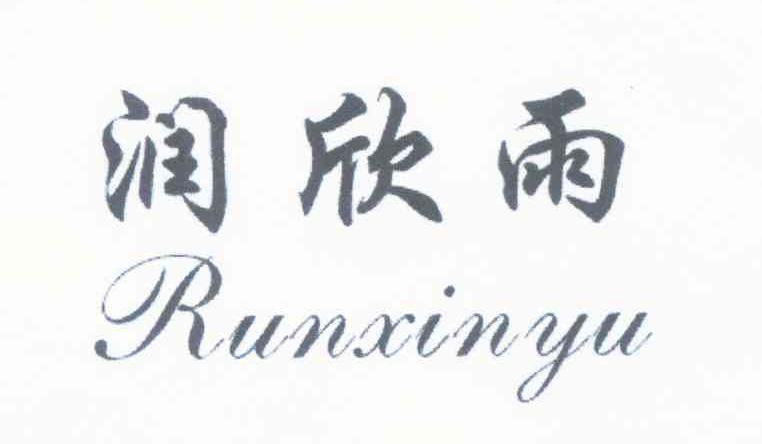 润欣雨
Runxinyu